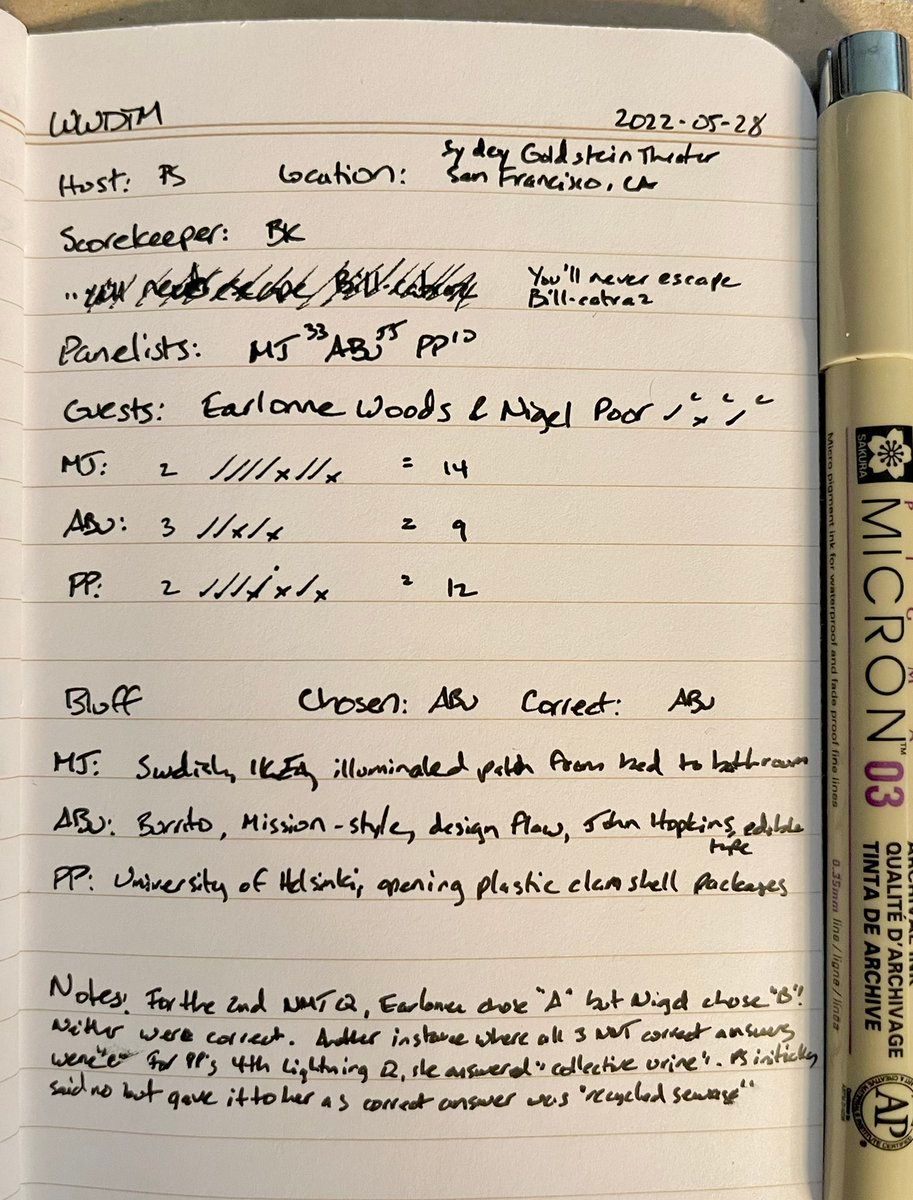 WWDTM 2022-05-28
Host: PS Location: Sydey Goldstein Theater
San Francisco, CA
Scorekeeper: BK
You'll never escape
Bill-catraz
Panelists: MJ 33 ABU 55 PP 10
Guests: Earlonne Woods & Nigel Poor / c x c / c
MJ: 2 ////x//x = 14
ABU: 3 //x/x = 9
PP: 2 ////x/x = 12
Bluff Chosen: ABU Correct: ABU
MJ: Swedish, IKEA, illuminated path from bed to bathroom
ABU: Burrito, Mission-style, design flaw, John Hopkins, edible
tape
PP: University of Helsinki, opening plastic clam shell packages
Notes: For the 2nd NMJ Q, Earlonne chose "A" but Nigel chose "B"!
Neither were correct. Another instance where all 3 NMJ correct answers
were "C" For PP's 4th Lightning Q, she answered "collective urine". PS initially
said no but gave it to her as correct answer was "recycled sewage"
SAKURA
PIGMA
MICRON™ 03
Micro pigment ink for waterproof and fade proof fine lines
0.35mm line/ligne/lines
ARCHIVAL INK
QUALITÉ D'ARCHIVAGE
TINTA DE ARCHIVE
AP